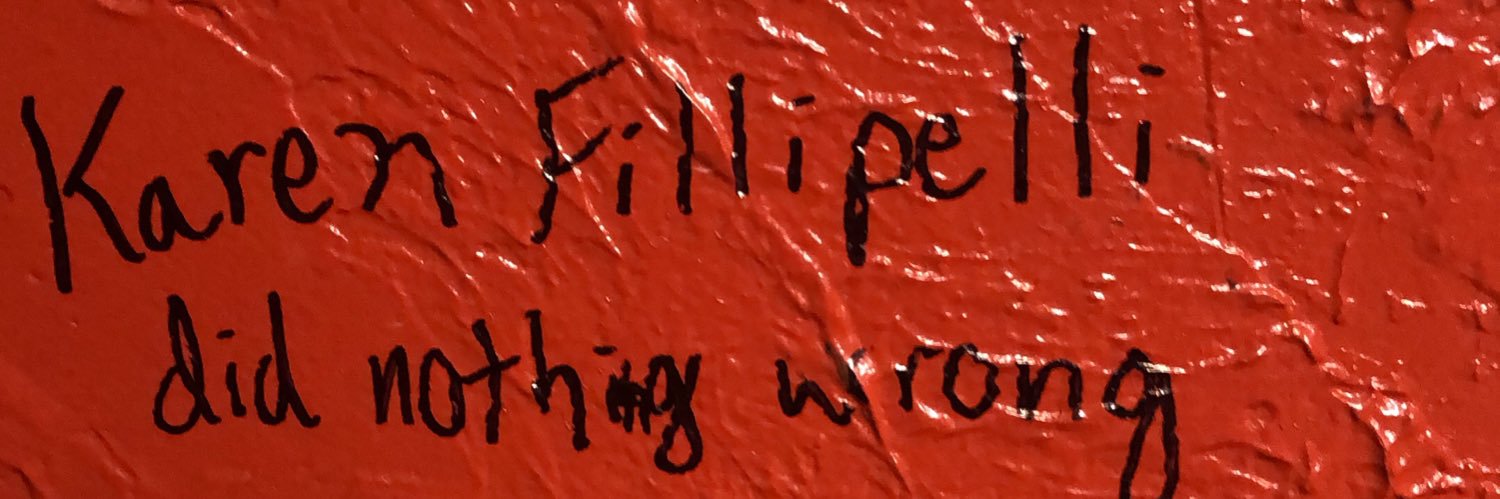 Karen Fillipelli
did nothing wrong